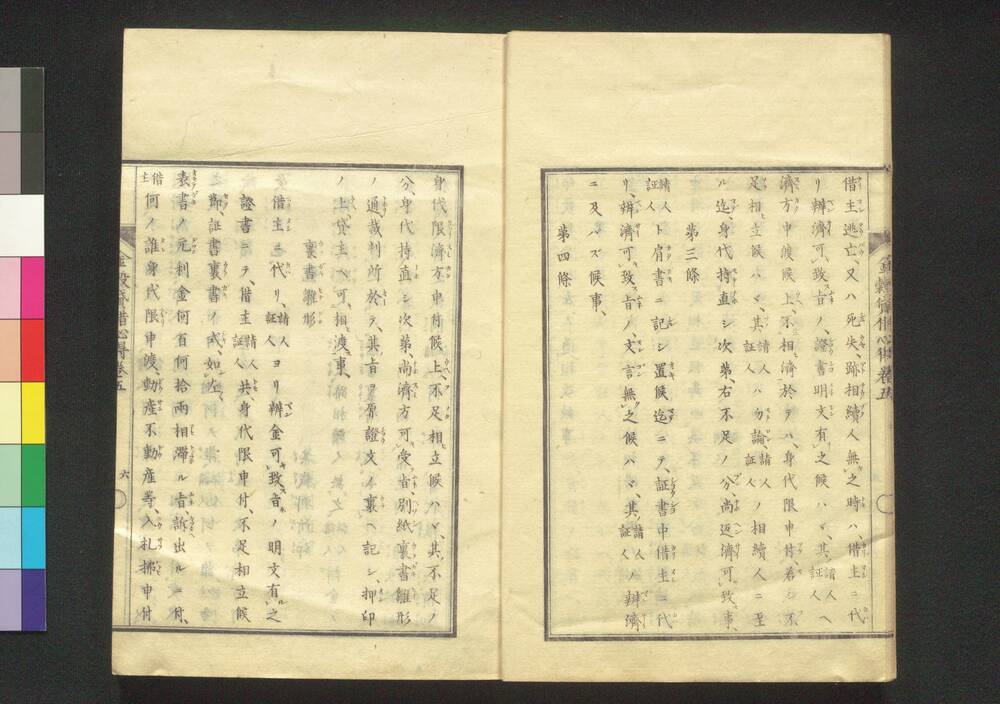 借主逃亡、又ハ死失、跡相續人無之時ハ、借主ニ代
リ辨濟可致旨ノ、證書明文有之候ハヾ、其請人証人ヘ
濟方申渡候上、不相濟於テハ、身代限申付、若シ不
足相立候ハヾ、其請人証人ハ勿論、請人証人ノ相續人ニ至
ル迄、身代持直シ次第、右不足ノ分、尚返濟可致事、
第三條
請人証人ト肩書ニ記シ置候迄ニテ、証書中借主ニ代
リ、辨濟可致旨ノ、文言無之候ハヾ、其請人証人ノ辨濟
ニ及バズ候事、
第四條
身代限濟方申付候上、不足相立候ハヾ、其不足ノ
分、身代持直シ次第、尚濟方可受旨、別紙裏書雛形
ノ通裁判所於テ、其旨原證文ヘ裏ヘ記シ、押印
ノ上、貸主ヘ可相渡事、
裏書雛形
借主ニ代リ、請人証人ヨリ辨金可致旨ノ明文有之
證書ニテ、借主請人証人共、身代限申付、不足相立候
節、証書裏書ノ式、如左、
表書ノ元利金何百何拾兩相滯ル旨、訴出ルニ付、
借主何ノ誰身代限申渡、動産不動産等、入札拂申付
金穀貸借心得 卷五
六